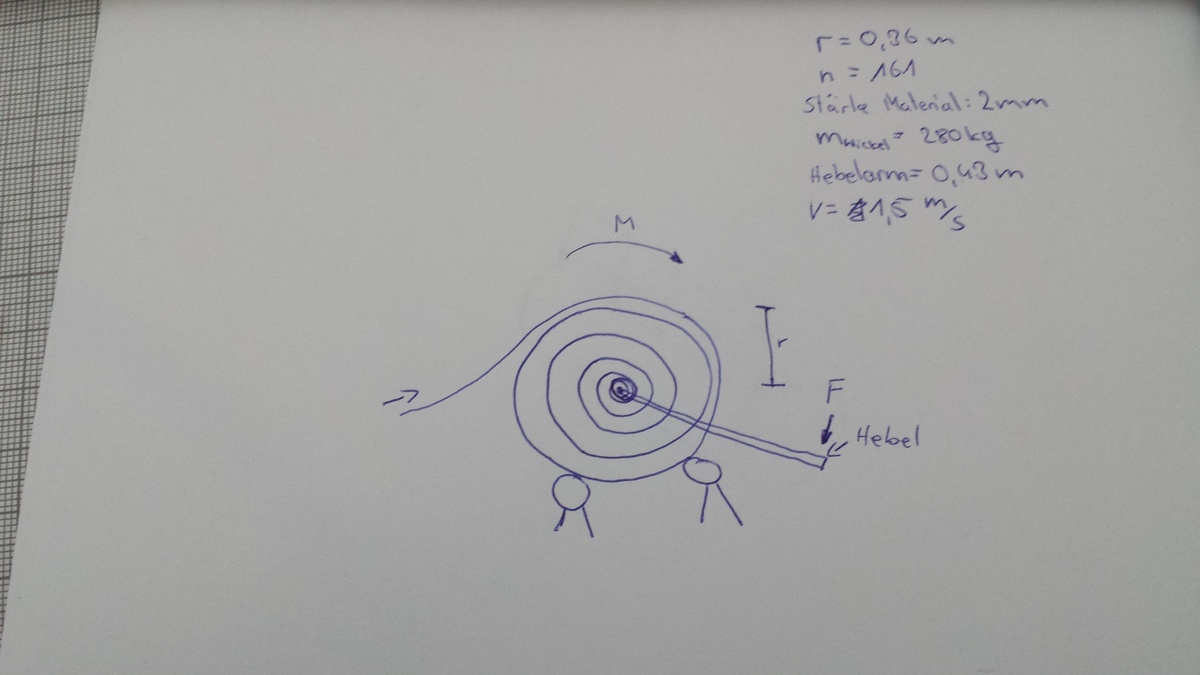 r = 0,36 m
n = 161
Stärke Material: 2mm
mWickel = 280 kg
Hebelarm = 0,43 m
V = 1,5 m/s
M
r
F
Hebel